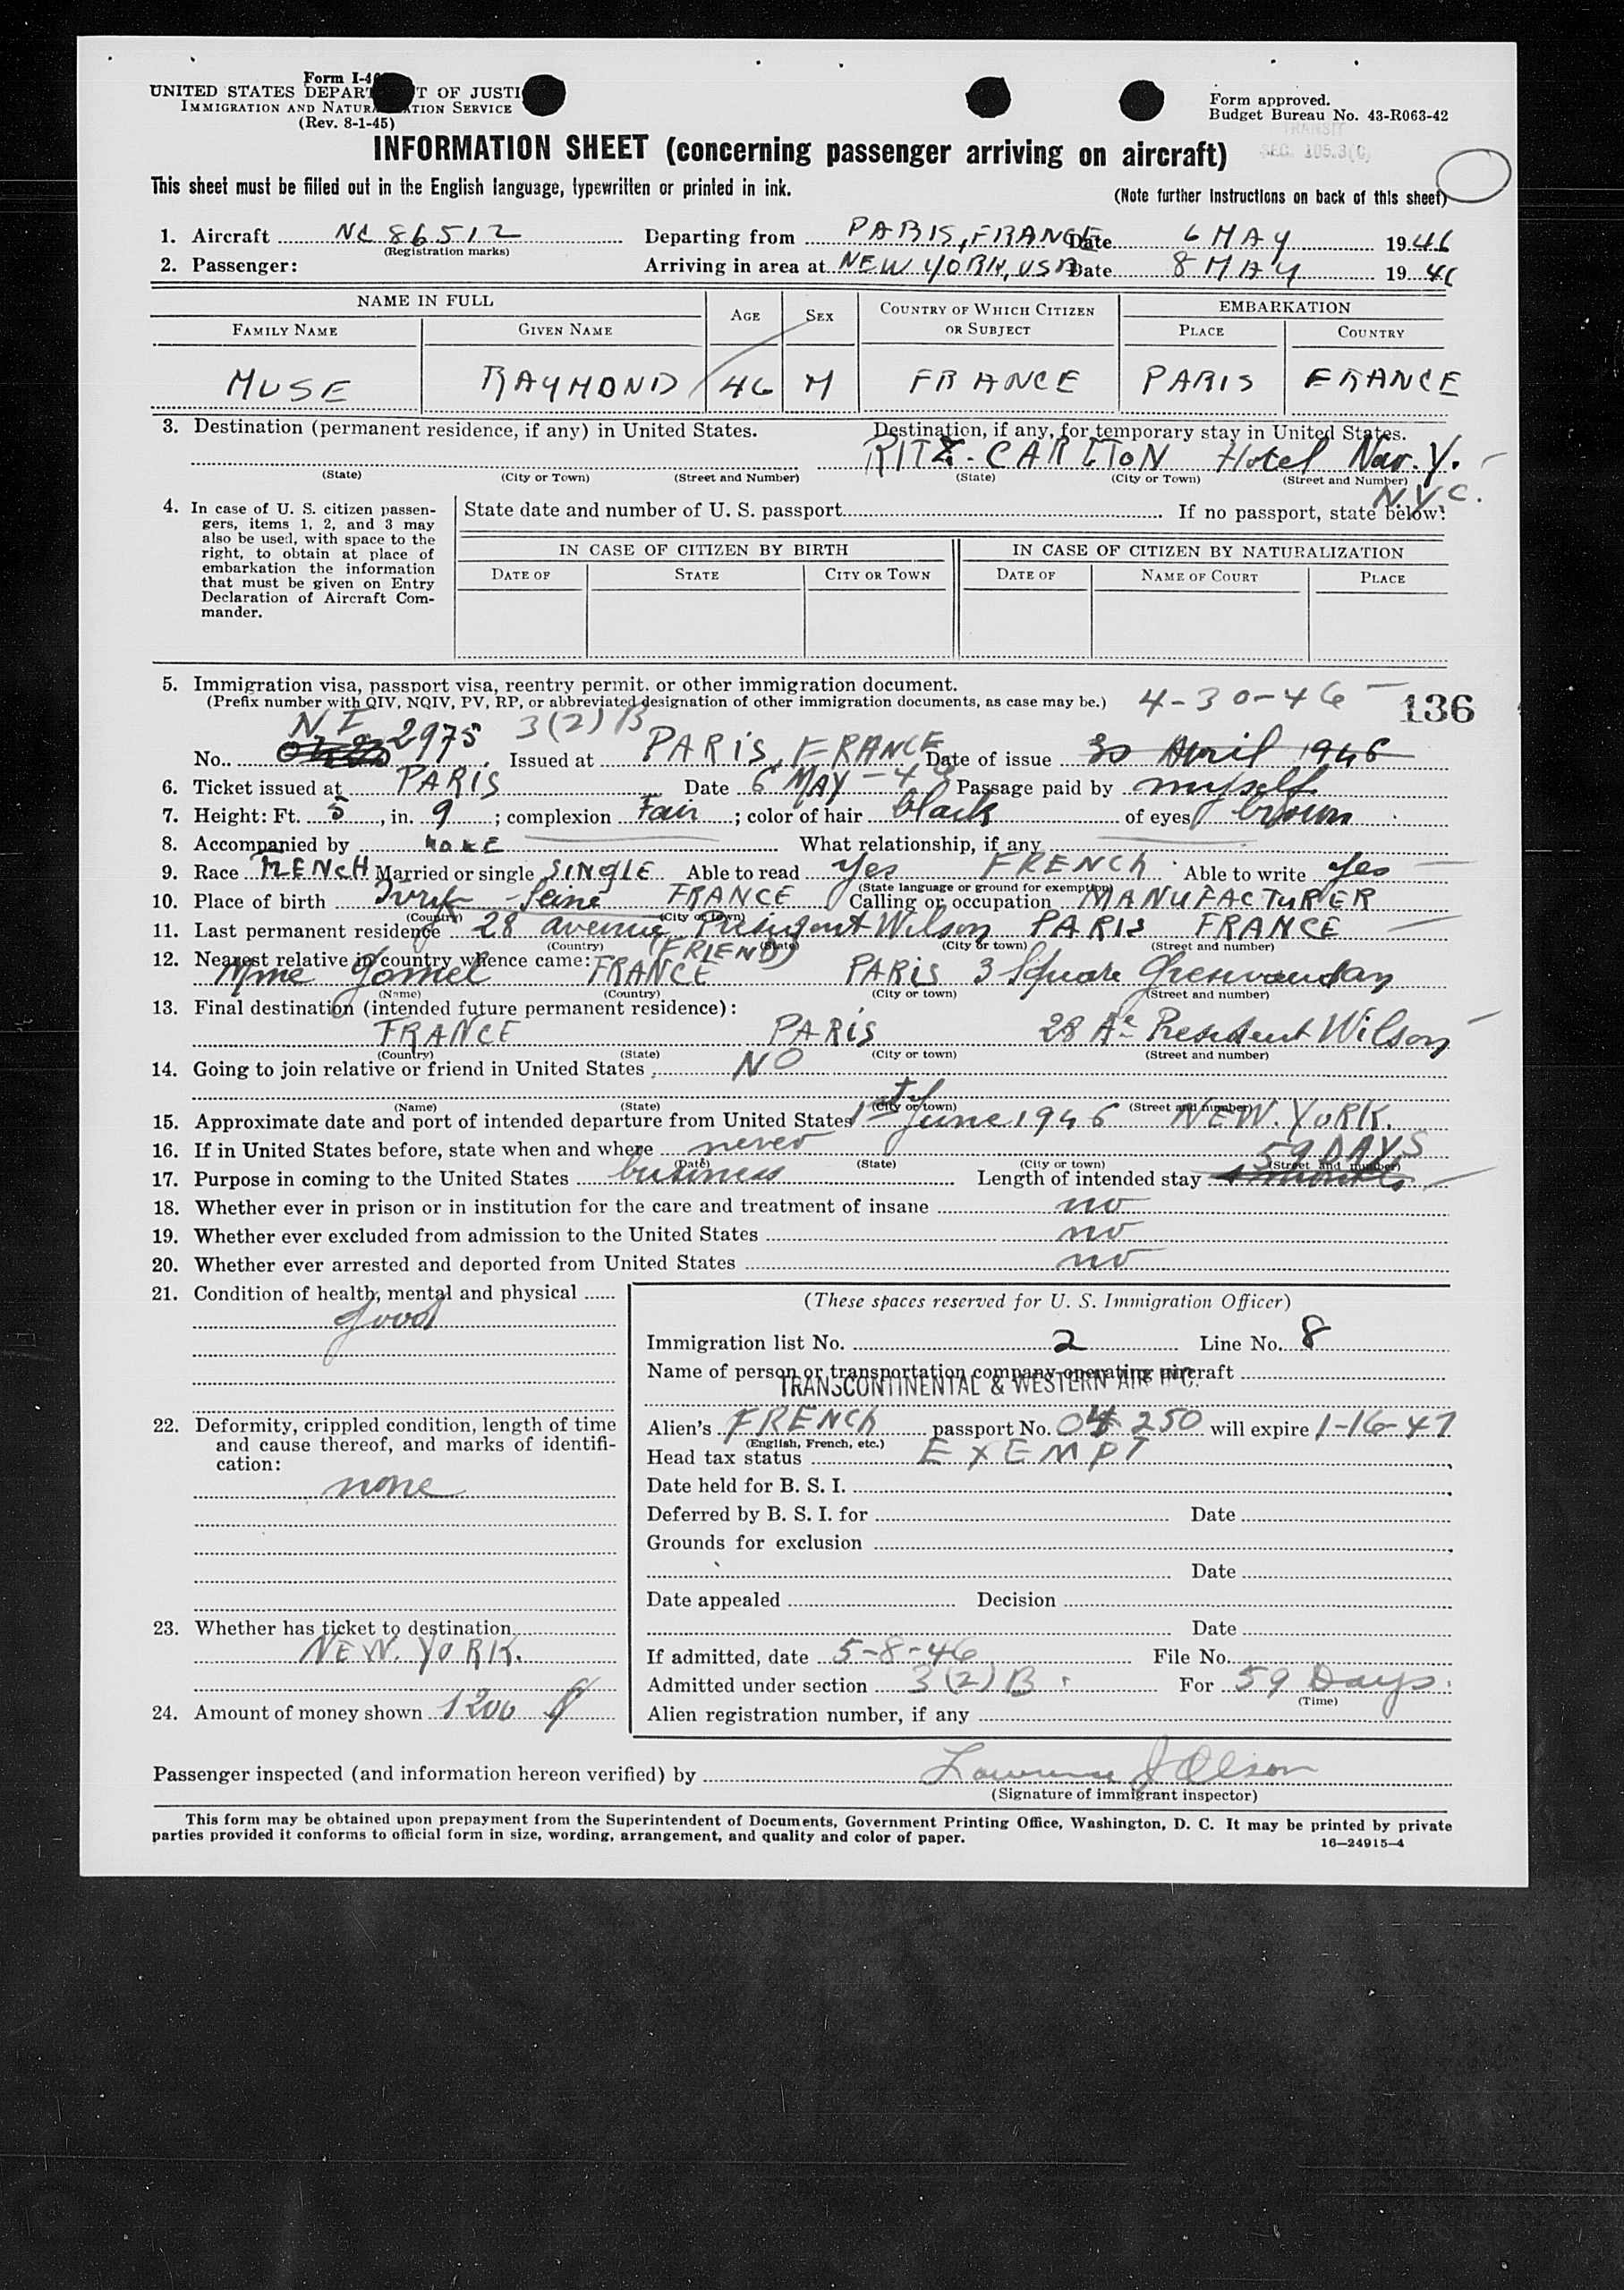 Form I-4
UNITED STATES DEPART T OF JUSTI
IMMIGRATION AND NATUR TION SERVICE
(Rev. 8-1-45)
Form approved.
Budget Bureau No. 43-R063-42
TRANSIT
SEC. 105.3(C)
INFORMATION SHEET (concerning passenger arriving on aircraft)
This sheet must be filled out in the English language, typewritten or printed in ink.
(Note further instructions on back of this sheet)
1. Aircraft NC 86512 Departing from PARIS, FRANCE Date 6 MAY 1946
(Registration marks)
2. Passenger: Arriving in area at NEW YORK, USA Date 8 MAY 1946
NAME IN FULL AGE SEX COUNTRY OF WHICH CITIZEN OR SUBJECT EMBARKATION
FAMILY NAME GIVEN NAME PLACE COUNTRY
MUSE RAYMOND 46 M FRANCE PARIS FRANCE
3. Destination (permanent residence, if any) in United States. Destination, if any, for temporary stay in United States.
RITZ-CARLTON Hotel N.Y.
(State) (City or Town) (Street and Number) (State) (City or Town) (Street and Number)
N.Y.C.
4. In case of U. S. citizen passen-
gers, items 1, 2, and 3 may
also be used, with space to the
right, to obtain at place of
embarkation the information
that must be given on Entry
Declaration of Aircraft Com-
mander.
State date and number of U. S. passport If no passport, state below:
IN CASE OF CITIZEN BY BIRTH IN CASE OF CITIZEN BY NATURALIZATION
DATE OF STATE CITY OR TOWN DATE OF NAME OF COURT PLACE
5. Immigration visa, passport visa, reentry permit, or other immigration document.
(Prefix number with QIV, NQIV, PV, RP, or abbreviated designation of other immigration documents, as case may be.) 4-30-46 136
NI 3(2)B
No. 2975 Issued at PARIS, FRANCE Date of issue 30 April 1946
6. Ticket issued at PARIS Date 6 MAY-46 Passage paid by myself
7. Height: Ft. 5, in. 9; complexion Fair; color of hair black of eyes brown
8. Accompanied by NONE What relationship, if any
9. Race FRENCH Married or single SINGLE Able to read Yes FRENCH Able to write yes
(State language or ground for exemption)
10. Place of birth Ivry Seine FRANCE Calling or occupation MANUFACTURER
(Country) (City or town)
11. Last permanent residence 28 avenue President Wilson PARIS FRANCE
(Country) (State) (City or town) (Street and number)
12. Nearest relative in country whence came: (FRIEND)
Mme Gomel FRANCE PARIS 3 Square
(Name) (Country) (City or town) (Street and number)
13. Final destination (intended future permanent residence):
FRANCE PARIS 28 Ae President Wilson
(Country) (State) (City or town) (Street and number)
14. Going to join relative or friend in United States NO
(Name) (State) (City or town) (Street and number)
15. Approximate date and port of intended departure from United States 1st June 1946 NEW. YORK.
16. If in United States before, state when and where never
(Date) (State) (City or town) (Street and number)
59 DAYS
17. Purpose in coming to the United States business Length of intended stay months
18. Whether ever in prison or in institution for the care and treatment of insane no
19. Whether ever excluded from admission to the United States no
20. Whether ever arrested and deported from United States no
21. Condition of health, mental and physical
good
22. Deformity, crippled condition, length of time
and cause thereof, and marks of identifi-
cation:
none
23. Whether has ticket to destination
NEW. YORK.
24. Amount of money shown 1200 $
(These spaces reserved for U. S. Immigration Officer)
Immigration list No. 2 Line No. 8
Name of person or transportation company operating aircraft
TRANSCONTINENTAL & WESTERN AIR INC.
Alien's FRENCH passport No. 250 will expire 1-16-47
(English, French, etc.)
Head tax status EXEMPT
Date held for B. S. I.
Deferred by B. S. I. for Date
Grounds for exclusion
Date
Date appealed Decision
Date
If admitted, date 5-8-46 File No.
Admitted under section 3(2)B For 59 Days
(Time)
Alien registration number, if any
Passenger inspected (and information hereon verified) by Lawrence J Olson
(Signature of immigrant inspector)
This form may be obtained upon prepayment from the Superintendent of Documents, Government Printing Office, Washington, D. C. It may be printed by private
parties provided it conforms to official form in size, wording, arrangement, and quality and color of paper.
16—24915-4